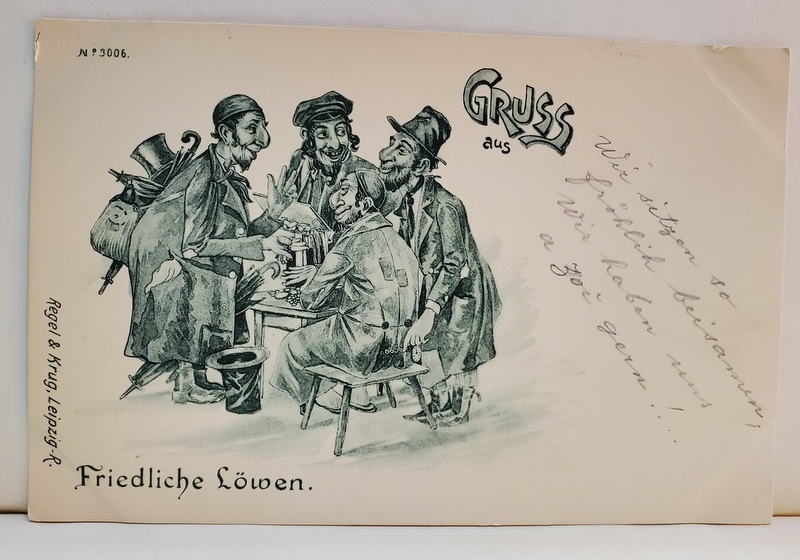 Nº 3006.
GRUSS
aus
Wir sitzen so
fröhlich beisamen,
Wir haben uns
a gern!...
Regel & Krug, Leipzig-R.
Friedliche Löwen.